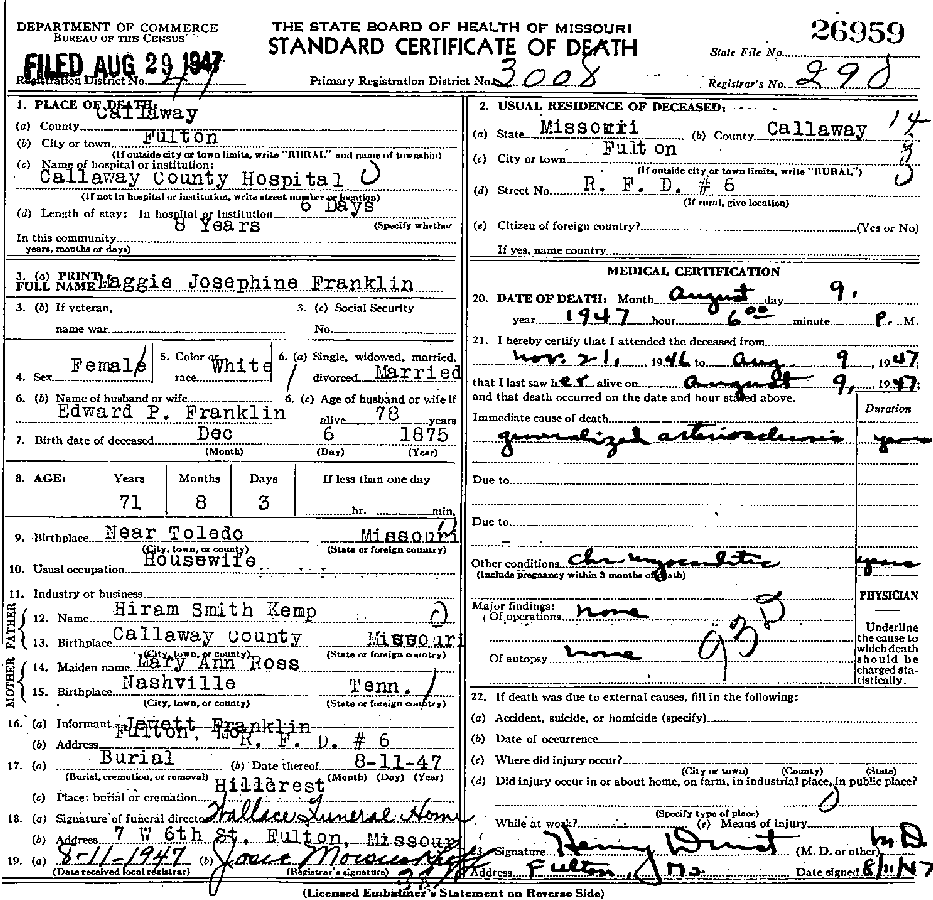 DEPARTMENT OF COMMERCE
BUREAU OF THE CENSUS
THE STATE BOARD OF HEALTH OF MISSOURI
STANDARD CERTIFICATE OF DEATH
26959
State File No.
FILED AUG 29 1947
Registration District No. 47
Primary Registration District No. 3008
Registrar's No. 290
1. PLACE OF DEATH:
(a) County Callaway
(b) City or town Fulton
(If outside city or town limits, write "RURAL" and name of township)
(c) Name of hospital or institution:
Callaway County Hospital
(If not in hospital or institution, write street number or location)
(d) Length of stay: In hospital or institution 6 Days
(Specify whether
In this community 8 Years
years, months or days)
3. (a) PRINT FULL NAME Maggie Josephine Franklin
3. (b) If veteran, name war
3. (c) Social Security No.
4. Sex Female
5. Color or race White
6. (a) Single, widowed, married, divorced Married
6. (b) Name of husband or wife Edward P. Franklin
6. (c) Age of husband or wife if alive 78 years
7. Birth date of deceased Dec 6 1875
(Month) (Day) (Year)
8. AGE: Years Months Days If less than one day
71 8 3 hr. min.
9. Birthplace Near Toledo Missouri
(City, town, or county) (State or foreign country)
10. Usual occupation Housewife
11. Industry or business
FATHER
12. Name Hiram Smith Kemp
13. Birthplace Callaway County Missouri
(City, town, or county) (State or foreign country)
MOTHER
14. Maiden name Mary Ann Ross
15. Birthplace Nashville Tenn.
(City, town, or county) (State or foreign country)
16. (a) Informant Jewett Franklin
(b) Address Fulton, Mo. R. F. D. # 6
17. (a) Burial (b) Date thereof 8-11-47
(Burial, cremation, or removal) (Month) (Day) (Year)
(c) Place: burial or cremation Hillcrest
18. (a) Signature of funeral director Wallace Funeral Home
(b) Address 7 W 6th St. Fulton, Missouri
19. (a) 8-11-1947 (b) Josie
(Date received local registrar) (Registrar's signature)
2. USUAL RESIDENCE OF DECEASED:
(a) State Missouri (b) County Callaway 14
(c) City or town Fulton
(If outside city or town limits, write "RURAL")
(d) Street No. R. F. D. # 6
(If rural, give location)
(e) Citizen of foreign country? (Yes or No)
If yes, name country
MEDICAL CERTIFICATION
20. DATE OF DEATH: Month August day 9,
year 1947 hour 6 00 minute P. M.
21. I hereby certify that I attended the deceased from
Nov. 21, 1946 to Aug 9, 1947
that I last saw her alive on August 9, 1947;
and that death occurred on the date and hour stated above.
Duration
Immediate cause of death
generalized arteriosclerosis years
Due to
Due to
Other conditions Chr myocarditis years
(Include pregnancy within 3 months of death)
Major findings:
Of operations none
Of autopsy none
93D
PHYSICIAN
Underline the cause to which death should be charged statistically.
22. If death was due to external causes, fill in the following:
(a) Accident, suicide, or homicide (specify)
(b) Date of occurrence
(c) Where did injury occur?
(City or town) (County) (State)
(d) Did injury occur in or about home, on farm, in industrial place, in public place?
(Specify type of place)
While at work? (e) Means of injury
23. Signature Henry Durst (M. D. or other) MD
Address Fulton, Mo Date signed 8/11/47
(Licensed Embalmer's Statement on Reverse Side)